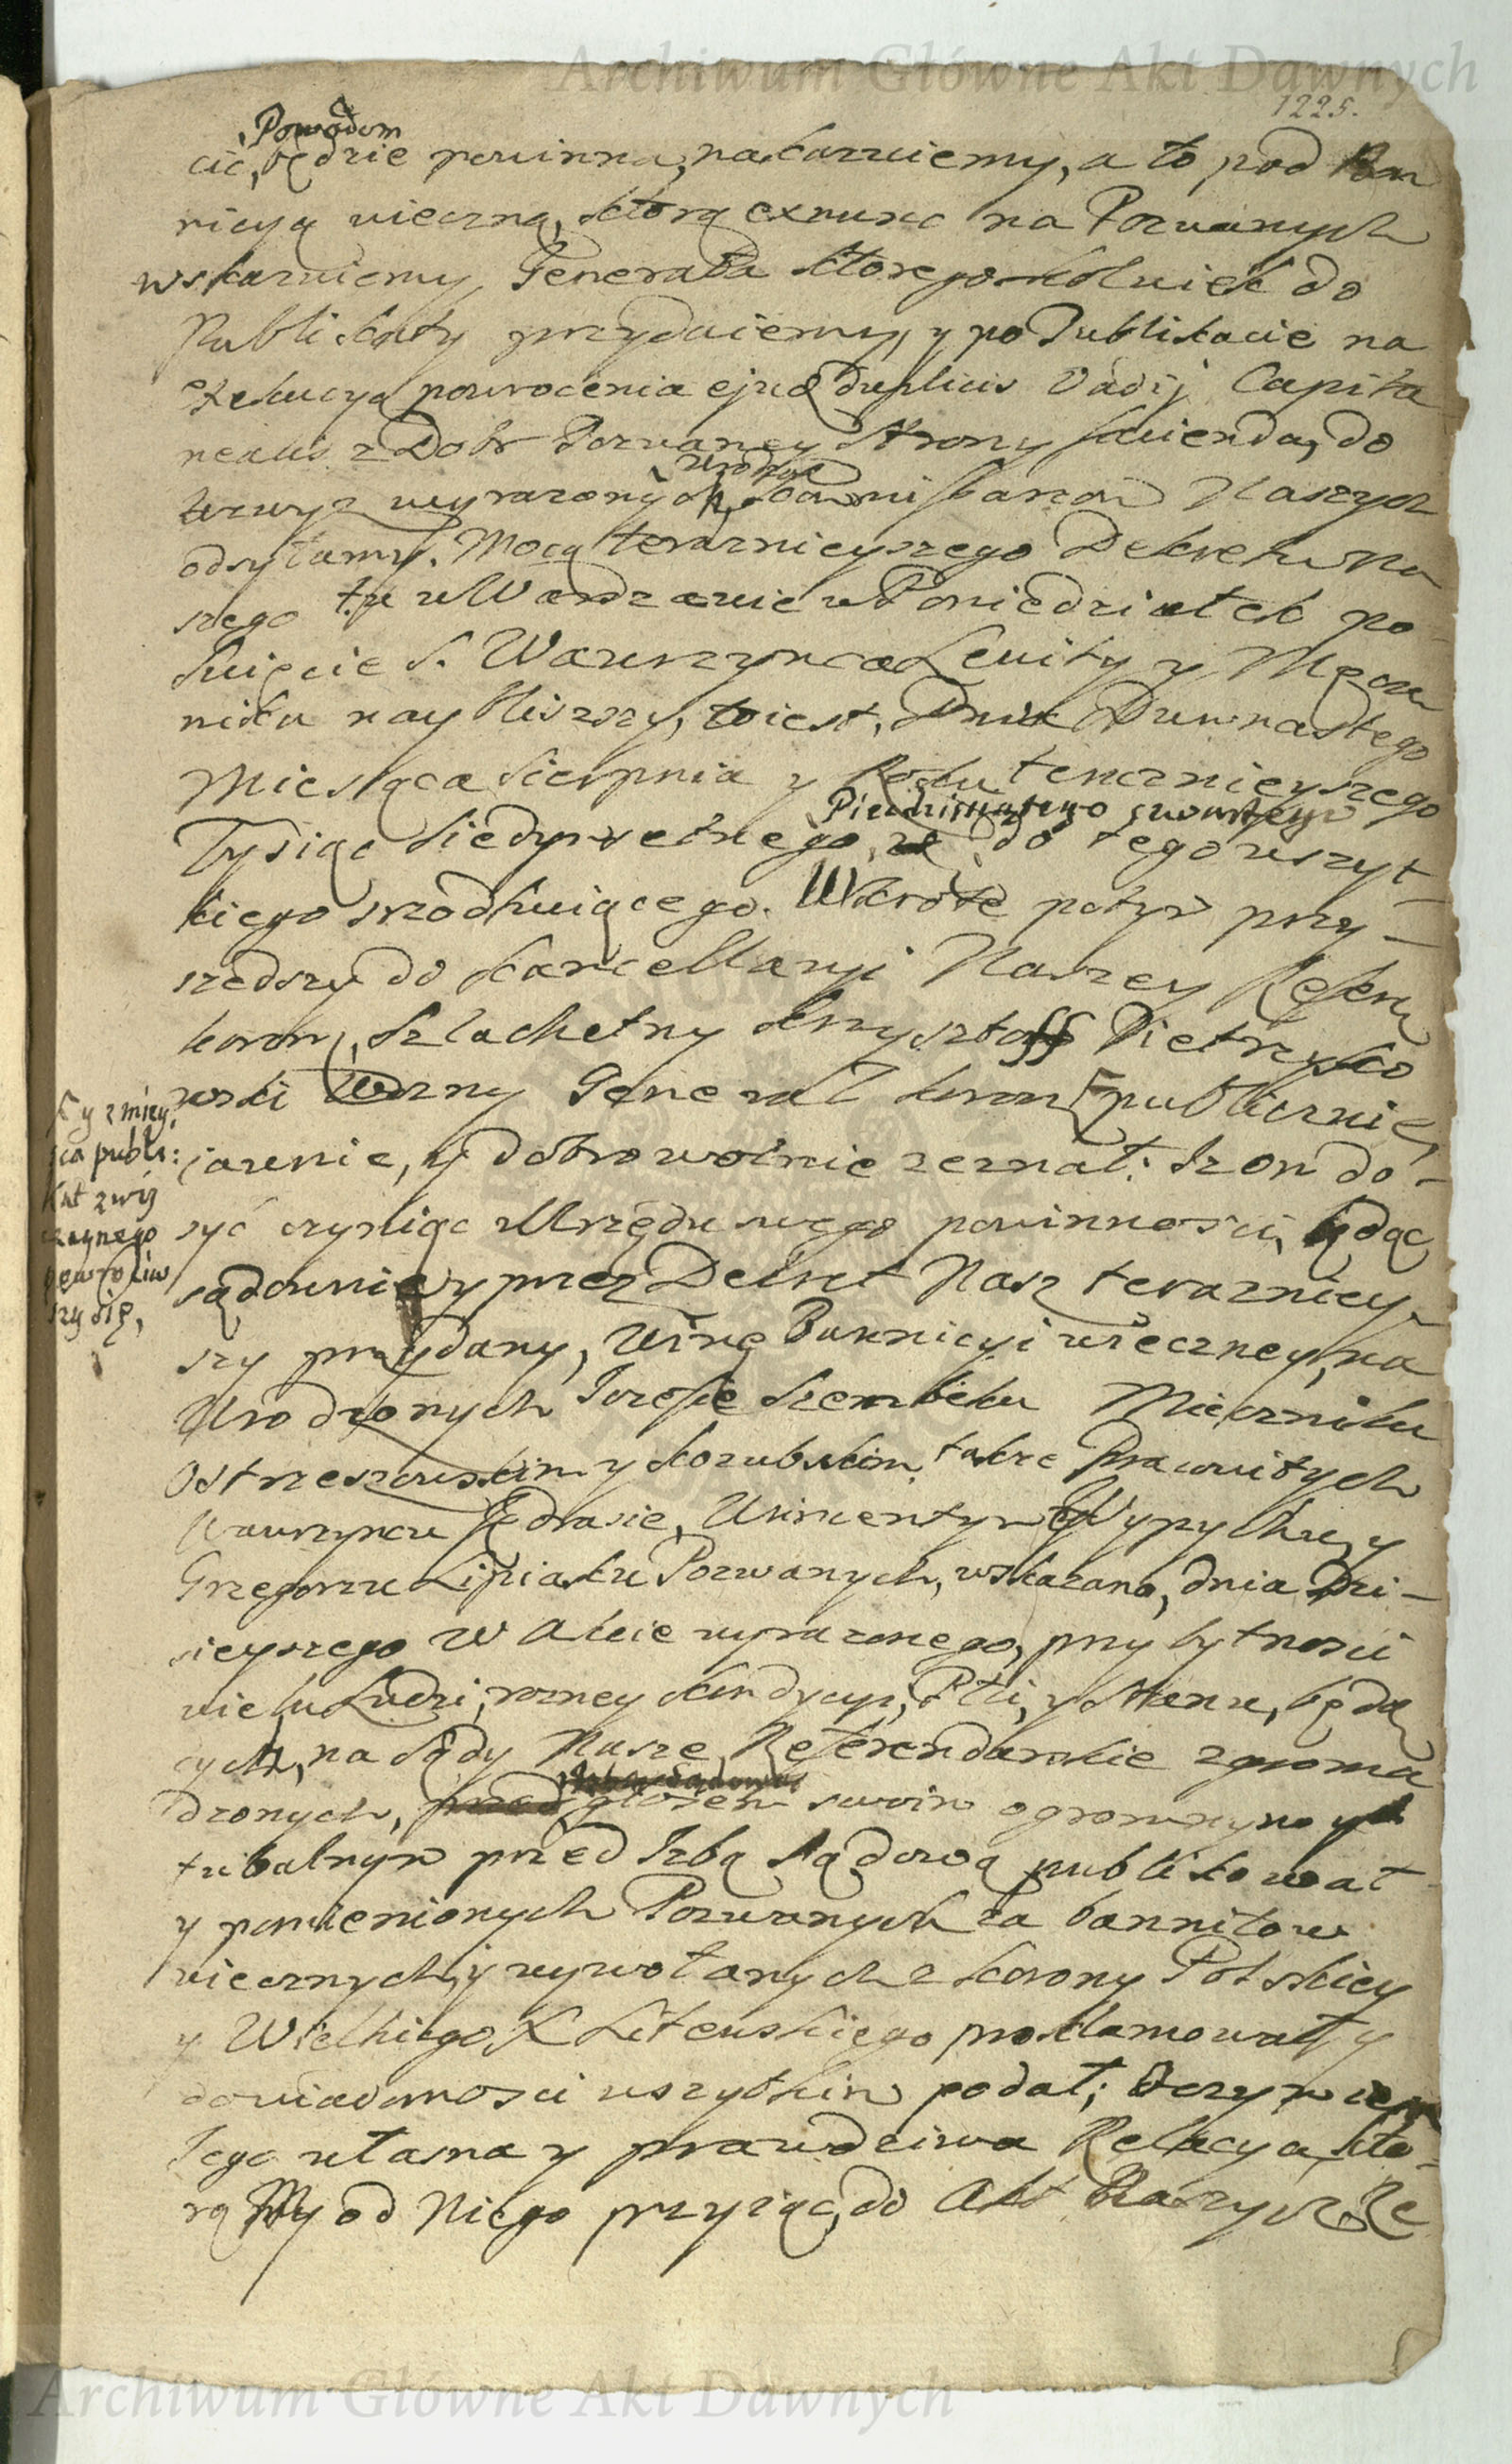 Archiwum Główne Akt Dawnych
1225.
Powodom
cić, będzie powinna, nakazuiemy, a to pod Ban
nicyą wieczną, ktorą exnunc na Pozwanych
wskazuiemy, Generała ktoregoskolwiek do
Publikaty przydaiemy, y po Publikacie na
exekucyą powrocenia ejusd duplicis Vadij Capita
neatus z Dobr Pozwaney Strony facienda, do
Urodze
wzwyz wyrazonych, Kommissarzow Naszych
odsyłamy. Mocą teraznieyszego Dekretu Na
szego tu w Warszawie w Poniedziałek po
Swięcie S. Wawrzynca Levity y Męcze
nika naybliszszy, to iest, Dnia Dwunastego
Miesiąca Sierpnia y Roku teraznieyszego
Piećdziesiątego czwartego
Tysiąc Siedymsetnego, do tego wszyt
kiego srzodkuiącego. Wkrotce potym przy
szedszy do Kancellaryi Naszey Referen
koronn, Szlachetny Krzysztoff Pietrzyko
wski Wozny Generał koron publicznie,
y z miey,
sca publi:
kat zwy
czaynego
powrociw
szy się,
iawnie, y dobrowolnie zeznał: Iz on do
syć czyniąc Urzędu swego powinnosci, będąc
sądownie y przez Dekret Nasz terazniey
szy przydany, Winę Bannicyi wieczney, na
Urodzonych Jozefie Szembeku Mieczniku
Ostrzeszowskim y Kozubskim, takze Pracowitych
Wawrzyncu Jędrasie, Wincentym Wypychu, y
Grzegorzu Lipiaku Pozwanych, wskazaną, dnia Dzi
sieyszego w Akcie wyrazonego, przy bytnosci
wielu Ludzi, rozney kondycyi, Płci, y Stanu, będą
cych, na Sądy Nasze Referendarskie zgroma
dzonych, głosem swoim ogromnym y
tubalnym przed Izbą Sądową publikował
y pomienionych Pozwanych za bannitow
wiecznych, y wywołanych z Korony Polskiey
y Wielkiego X Litewskiego proklamował y
do wiadomosci wszytkim podał; O czym iest
Jego własna y prawdziwa Relacya, kto
rą My od Niego przyiąć, do Akt Naszych Re
Archiwum Główne Akt Dawnych